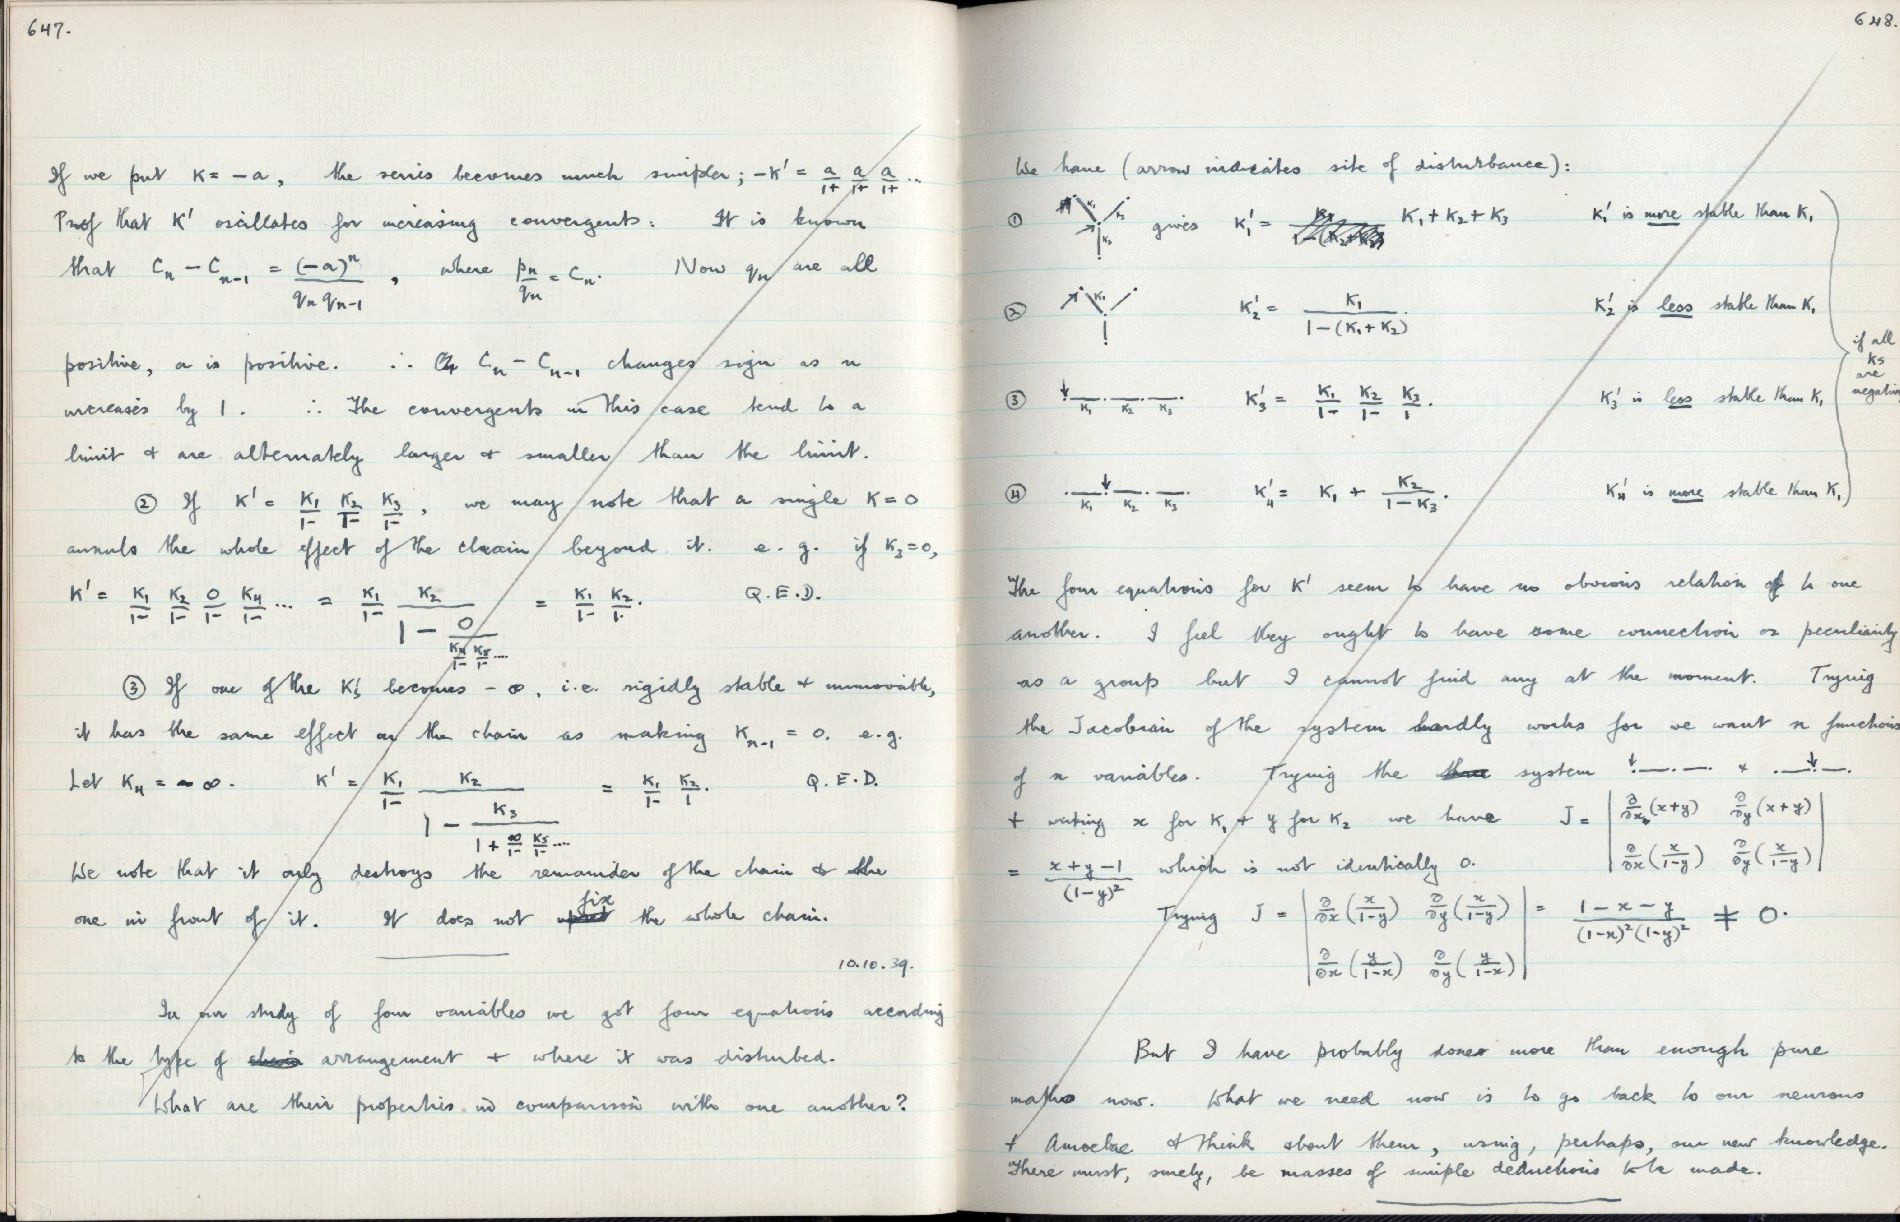 647.
If we put K = -a, the series becomes much simpler; -K' = a/1+ a/1+ a/1+ ...
Proof that K' oscillates for increasing convergents: It is known
that Cn - Cn-1 = (-a)^n / qn qn-1 , where pn/qn = Cn. Now qn are all
positive, a is positive. ∴ Cn - Cn-1 changes sign as n
increases by 1. ∴ The convergents in this case tend to a
limit & are alternately larger & smaller than the limit.
② If K' = K1/1- K2/1- K3/1- , we may note that a single K = 0
annuls the whole effect of the chain beyond it. e.g. if K3 = 0,
K' = K1/1- K2/1- 0/1- K4/1- ... = K1/1- K2/(1 - 0/(K4/1- K5/1- ...)) = K1/1- K2/1. Q.E.D.
③ If one of the K's becomes -∞, i.e. rigidly stable & immovable,
it has the same effect on the chain as making Kn-1 = 0. e.g.
Let K4 = -∞. K' = K1/1- K2/(1 - K3/(1 + ∞/1- K5/1- ....)) = K1/1- K2/1. Q.E.D.
We note that it only destroys the remainder of the chain & the
one in front of it. It does not fix the whole chain.
10.10.39.
In our study of four variables we got four equations according
to the type of chain arrangement & where it was disturbed.
What are their properties in comparison with one another?
648.
We have (arrow indicates site of disturbance):
① K1 K2 K3 gives K1' = K1 + K2 + K3 K1' is more stable than K1
② K1 K2' = K1 / 1-(K1+K2) K2' is less stable than K1
③ K1 K2 K3 K3' = K1/1- K2/1- K3/1. K3' is less stable than K1
④ K1 K2 K3 K4' = K1 + K2/1-K3. K4' is more stable than K1
if all
Ks
are
negative
The four equations for K' seem to have no obvious relation to one
another. I feel they ought to have some connection or peculiarity
as a group but I cannot find any at the moment. Trying
the Jacobian of the system hardly works for we want n functions
of n variables. Trying the system ↓.—.—. & .—↓.—.
+ writing x for K1 & y for K2 we have J = | ∂/∂x (x+y) ∂/∂y (x+y) |
| ∂/∂x (x/1-y) ∂/∂y (x/1-y) |
= x+y-1 / (1-y)² which is not identically 0.
Trying J = | ∂/∂x (x/1-y) ∂/∂y (x/1-y) | = 1-x-y / (1-x)²(1-y)² ≠ 0.
| ∂/∂x (y/1-x) ∂/∂y (y/1-x) |
But I have probably done more than enough pure
maths now. What we need now is to go back to our neurons
& Amoebae & think about them, using, perhaps, our new knowledge.
There must, surely, be masses of simple deductions to be made.